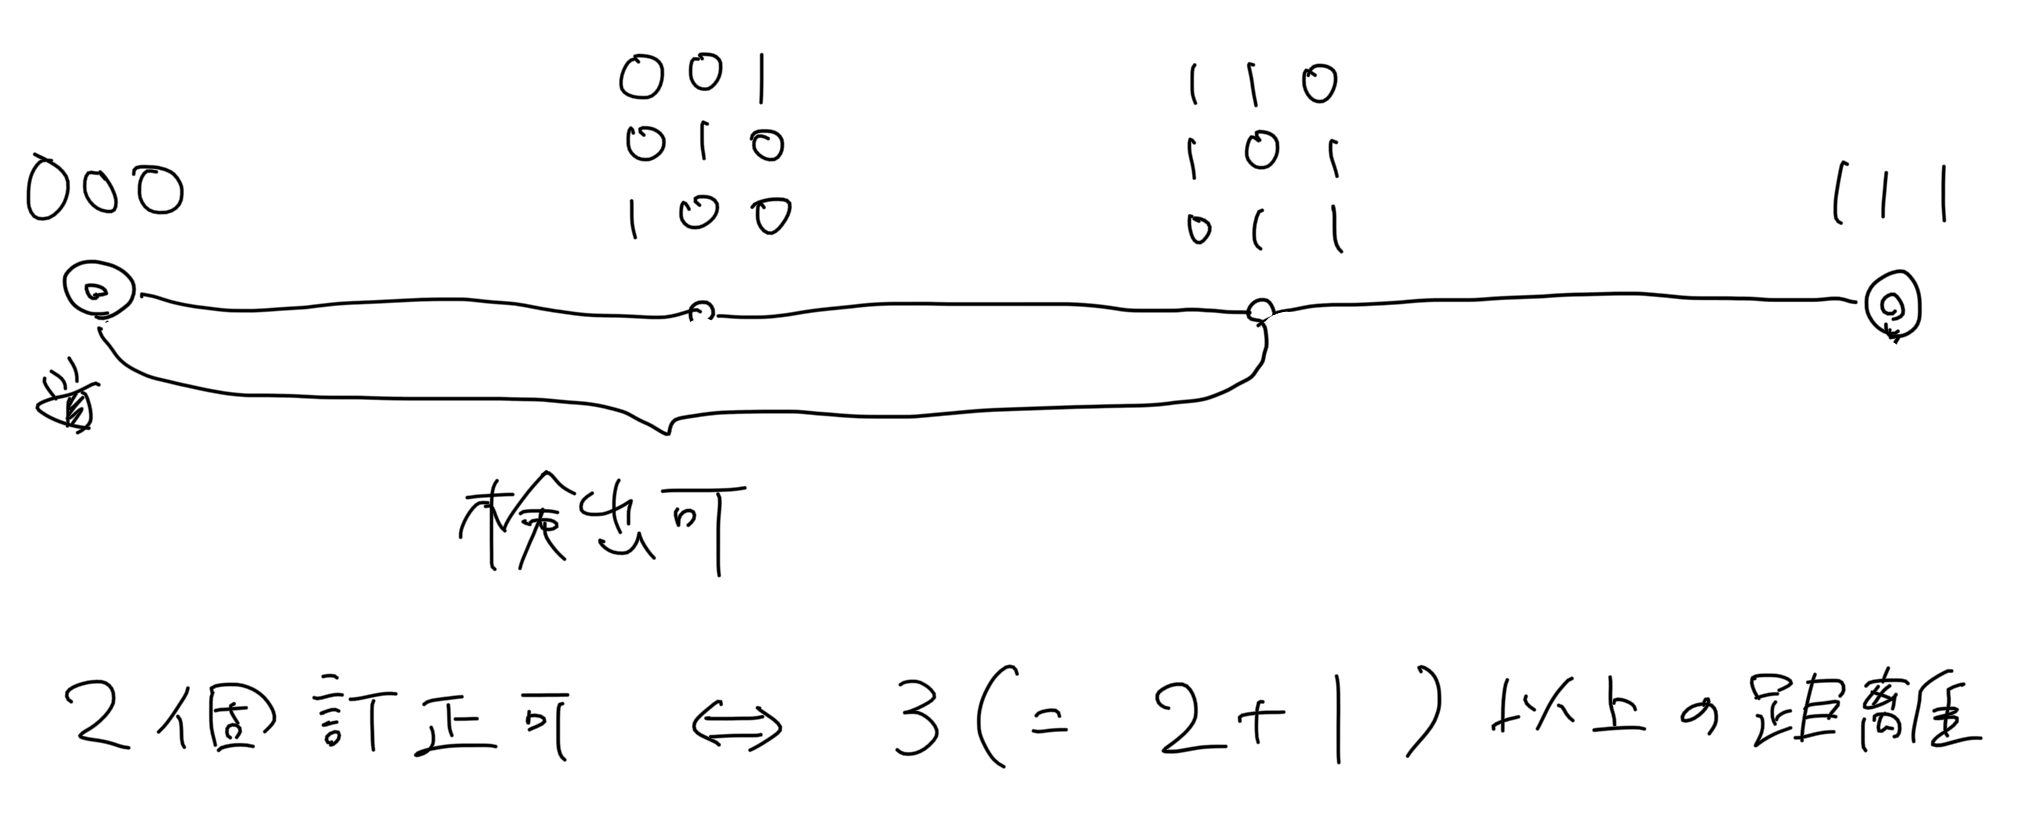 000
001
010
100
110
101
011
111
検出可
2個訂正可 ⇔ 3(= 2+1)以上の距離